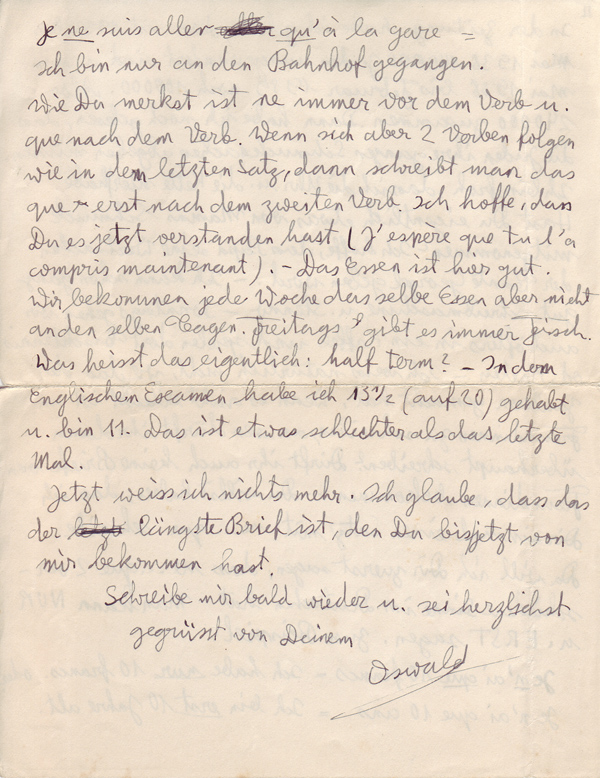 Je ne suis aller qu'à la gare =
Ich bin nur an den Bahnhof gegangen.
Wie Du merkst ist ne immer vor dem Verb u.
que nach dem Verb. Wenn sich aber 2 Verben folgen
wie in dem letzten Satz, dann schreibt man das
que erst nach dem zweiten Verb. Ich hoffe, dass
Du es jetzt verstanden hast (J'espère que tu l'a
compris maintenant). – Das Essen ist hier gut.
Wir bekommen jede Woche das selbe Essen aber nicht
an den selben Tagen. Freitags gibt es immer Fisch.
Was heisst das eigentlich: half term? – In dem
Englischen Examen habe ich 13 1/2 (auf 20) gehabt
u. bin 11. Das ist etwas schlechter als das letzte
Mal.
Jetzt weiss ich nichts mehr. Ich glaube, dass das
der längste Brief ist, den Du bis jetzt von
mir bekommen hast.
Schreibe mir bald wieder u. sei herzlichst
gegrüsst von Deinem
Oswald